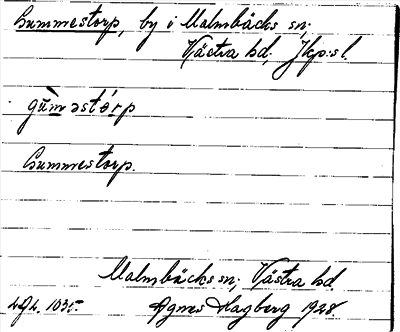 Gummestorp, by i Malmbäcks sn;
Västra hd, Jkp:s l.
gùməstórp
Gummestorp.
Malmbäcks sn; Västra hd.
Agnes Hagberg 1928